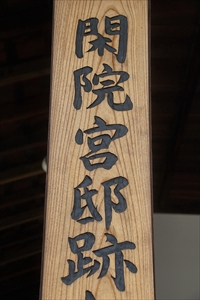 閑院宮邸跡